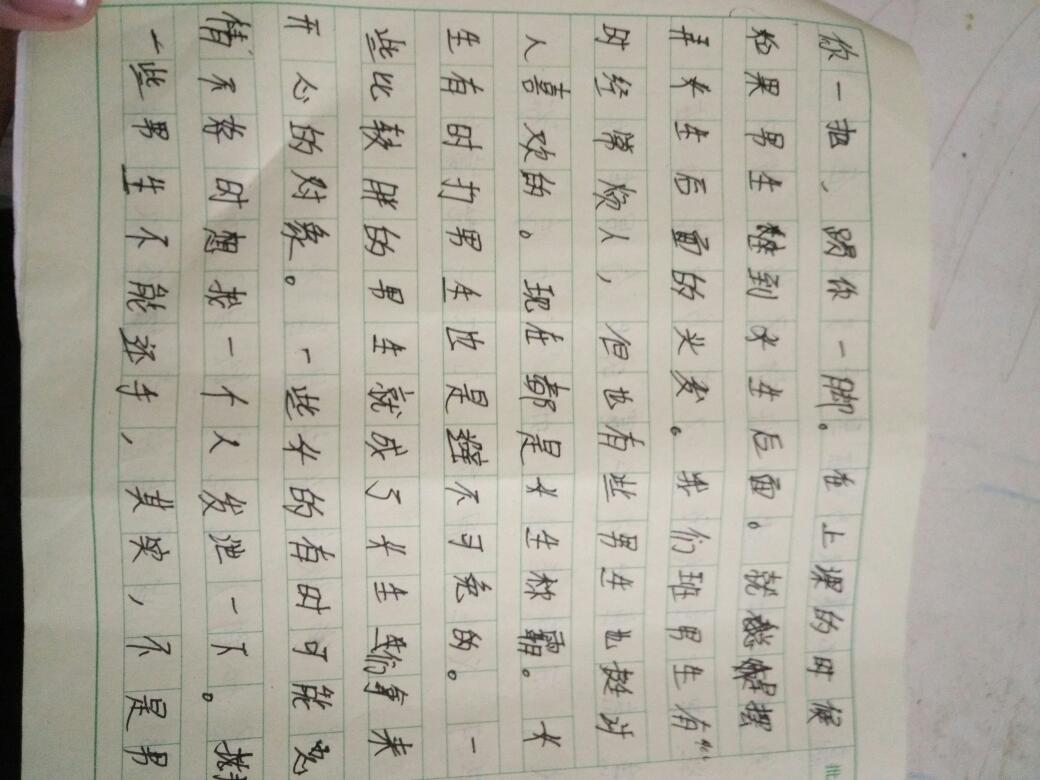 你一把、踢你一脚。在上课的时候
如果男生坐到女生后面。就摆
弄女生后面的头发。我们班男生有
时经常烦人，但也有些男生也挺讨
人喜欢的。现在都是女生称霸。女
生有时打男生也是避不可免的。一
些比较胖的男生就成了女生们拿来
开心的对象。一些女的有时可能心
情不好时想找一个人发泄一下。
一些男生不能还手，其实，不是男